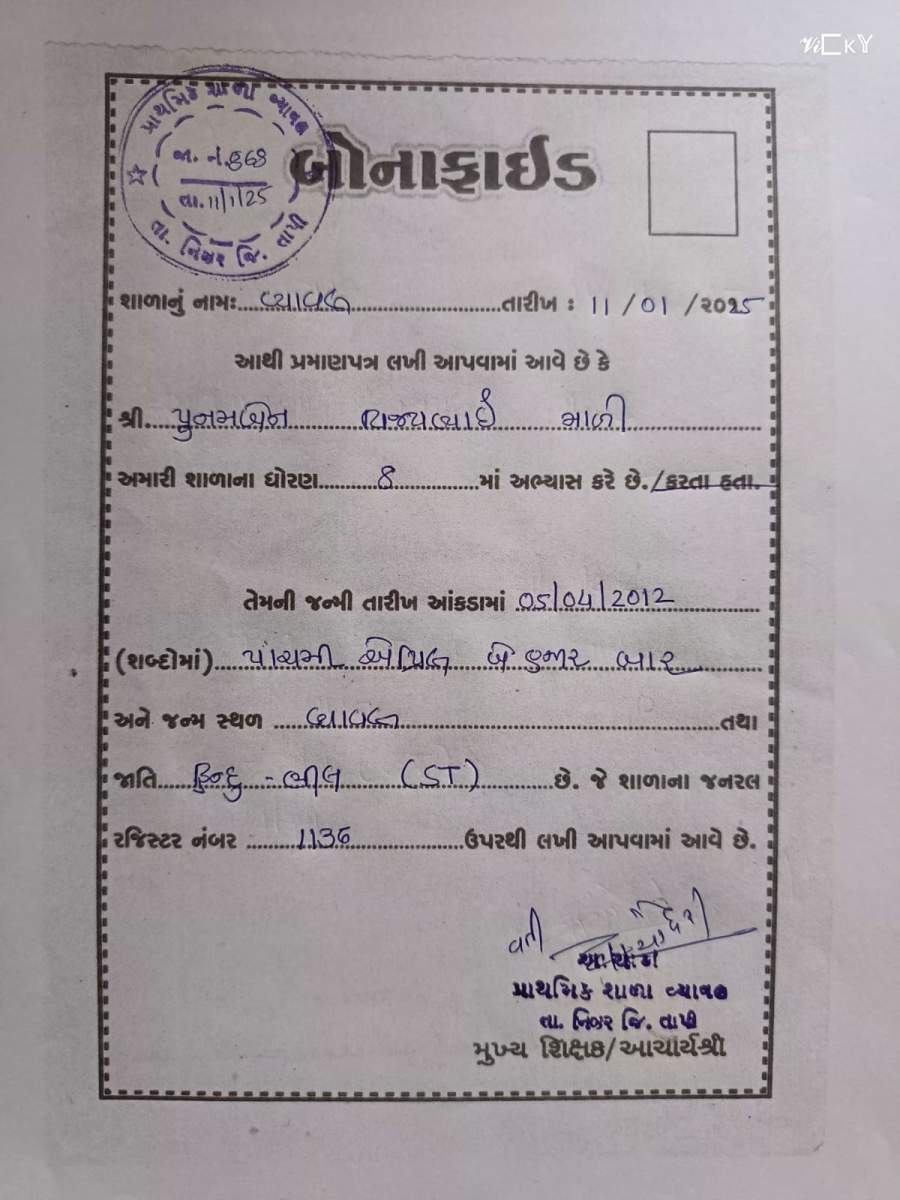 ViCKY
પ્રાથમિક શાળા વ્યાવલ
જા. નં.
તા. 11/1/25
તા. નિઝર જિ. તાપી
બોનાફાઈડ
શાળાનું નામઃ વ્યાવલ તારીખ : 11 / 01 / ૨૦૨5
આથી પ્રમાણપત્ર લખી આપવામાં આવે છે કે
શ્રી. પુનમબેન રાજયભાઈ માળી
અમારી શાળાના ધોરણ 8 માં અભ્યાસ કરે છે./કરતા હતા.
તેમની જન્મી તારીખ આંકડામાં 05/04/2012
(શબ્દોમાં) પાંચમી એપ્રિલ બે હજાર બાર
અને જન્મ સ્થળ વ્યાવલ તથા
જાતિ હિન્દુ - ભીલ (ST) છે. જે શાળાના જનરલ
રજિસ્ટર નંબર 1136 ઉપરથી લખી આપવામાં આવે છે.
વતી
આચાર્ય
પ્રાથમિક શાળા વ્યાવલ
તા. નિઝર જિ. તાપી
મુખ્ય શિક્ષક/આચાર્યશ્રી